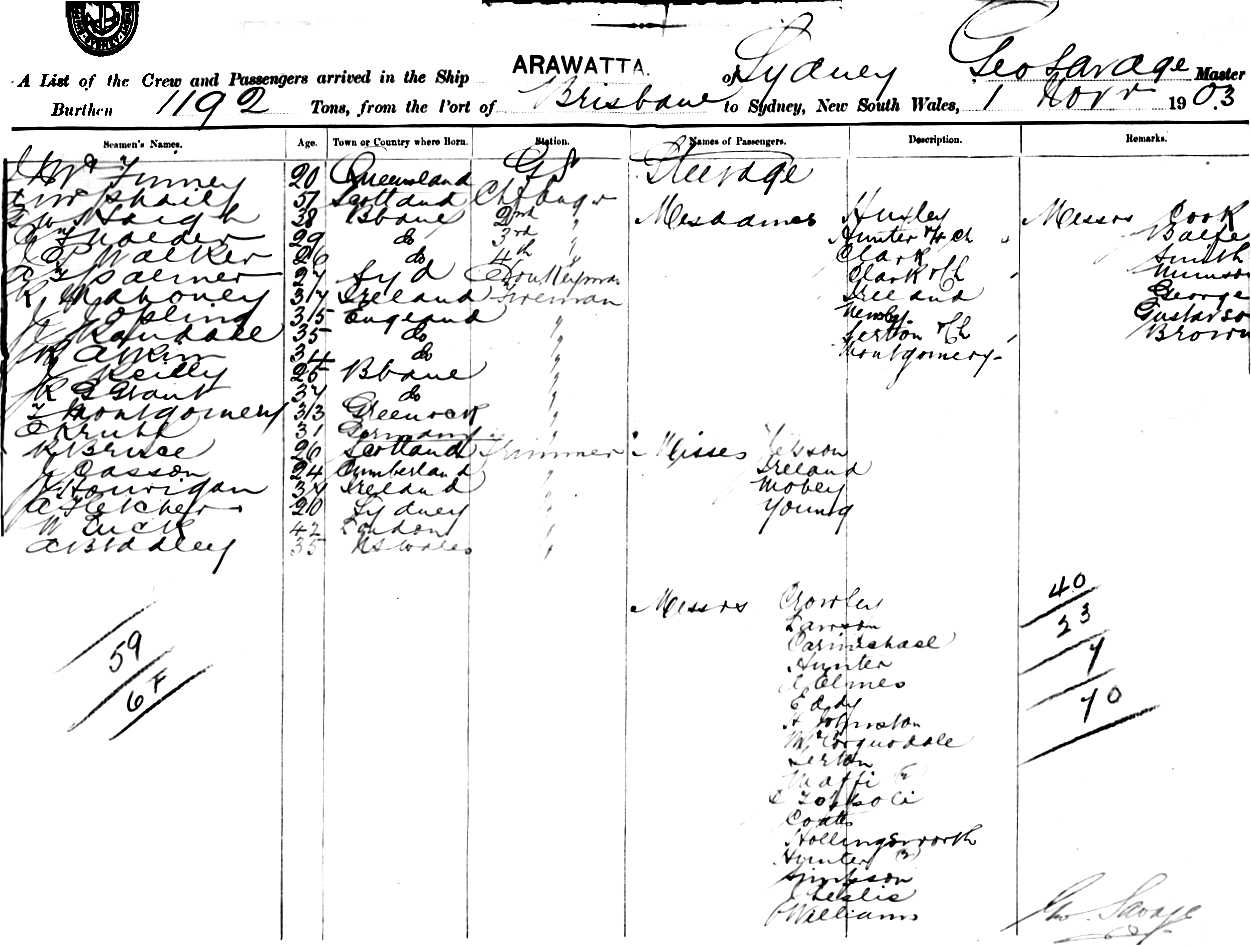 A List of the Crew and Passengers arrived in the Ship ARAWATTA. of Sydney Geo Savage Master
Burthen 1192 Tons, from the Port of Brisbane to Sydney, New South Wales, 1 Novr 1903
Seamen's Names. Age. Town or Country where Born. Station. Names of Passengers. Description. Remarks.
Finney 20 Queensland G.S. Steerage
51 Scotland Ch Engr
Haigh 38 Bbane 2nd " Mesdames Huxley Messrs Cook
29 do 3rd " Hunter & 4 Ch " Balfe
Walker 26 do 4th " Clark Smith
Palmer 27 Syd Donkeyman Clark & Ch "
R Mahoney 37 Ireland Fireman Ireland George
J Jopling 35 England " Newby Gustafson
Ramsdale 35 do " Serton & Ch " Brown
Aitkin 34 do " Montgomery
Reilly 25 Bbane "
R G Grant 37 do "
T Montgomery 33 Greenock "
31 Germany "
R Bruce 26 Scotland Trimmer Misses Jepson
J Casson 24 Cumberland " Ireland
Hourigan 34 Ireland " Mobey
A Fletcher 20 Sydney " Young
W Luck 42 London "
A Bradley 35 NS Wales "
Messrs Crowley 40
Lawson 23
Carmichael 7
Hunter 70
59 A Elmes
6 F Eddy
A Johnston
McCorquodale
Serton
Maffi
Coates
Hollingsworth
Hunter (2)
Simpson
Leslie
Williams
Geo. Savage